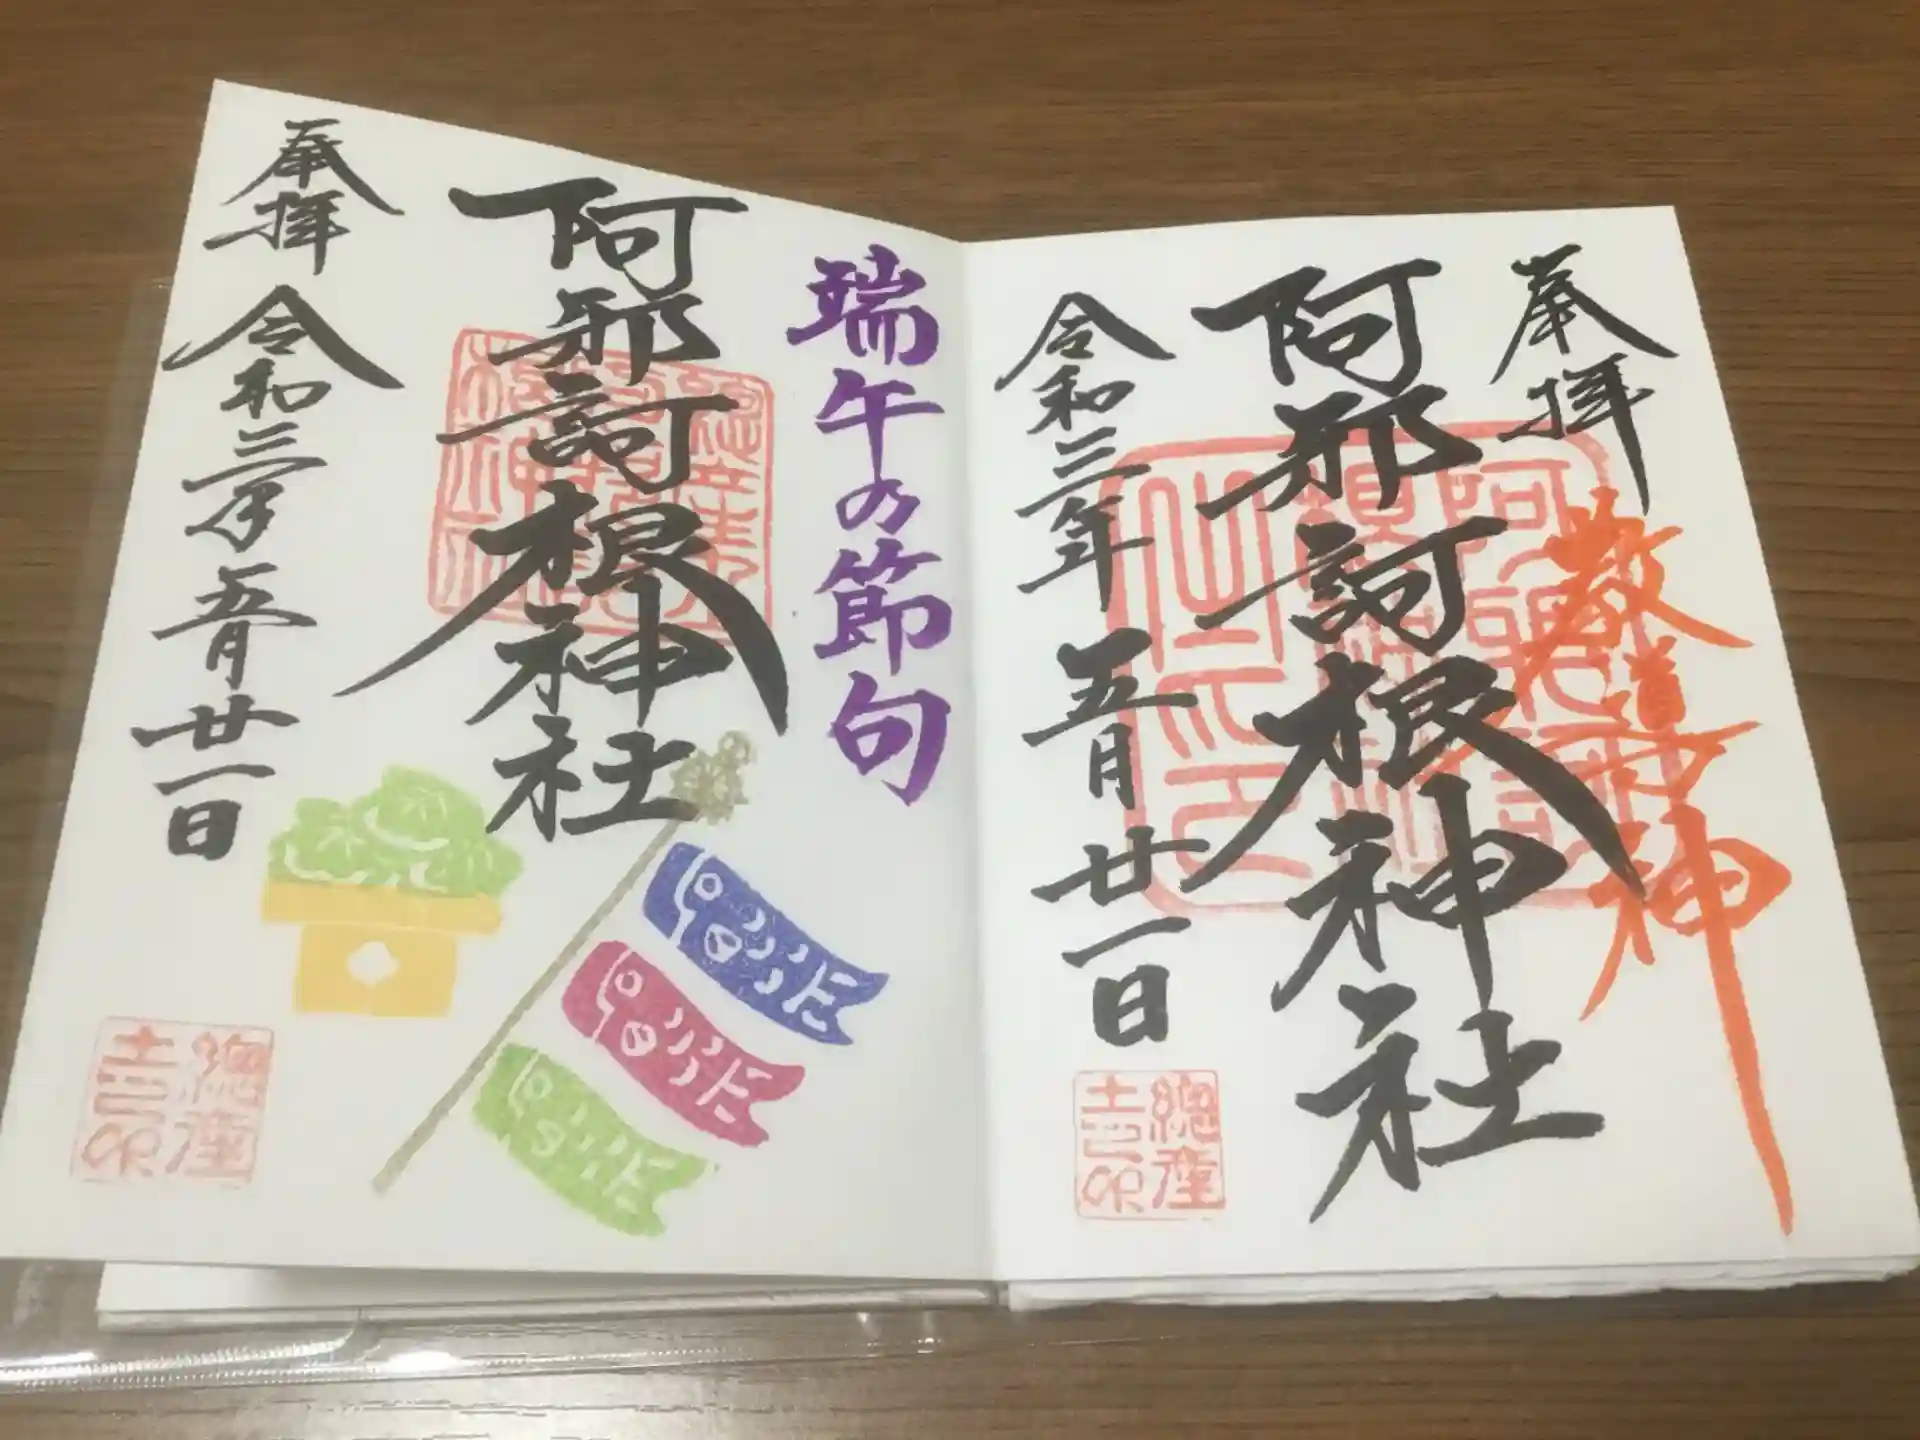 奉拝
数道守神
阿那訶根神社
令和三年五月廿一日
端午の節句
阿那訶根神社
奉拝
令和三年五月廿一日